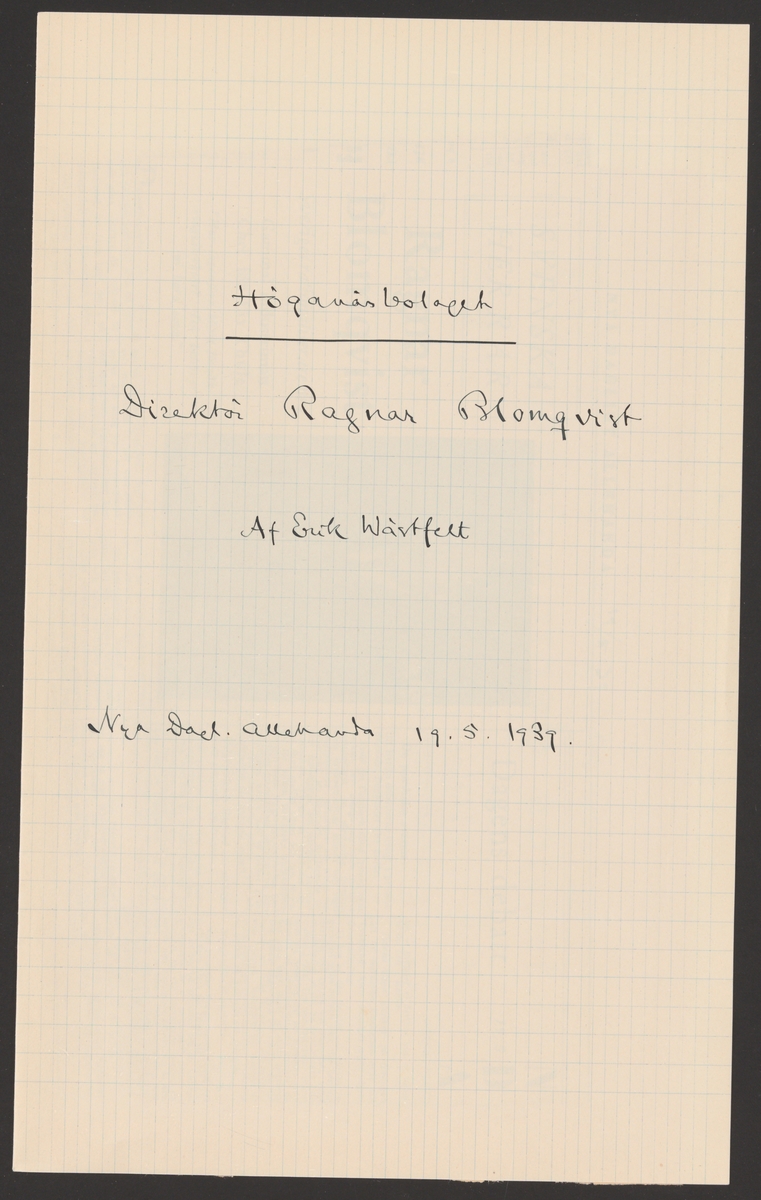 Höganäsbolaget
Direktör Ragnar Blomqvist
Af Erik Wästfelt
Nya Dagl. Allehanda 19.5.1939.